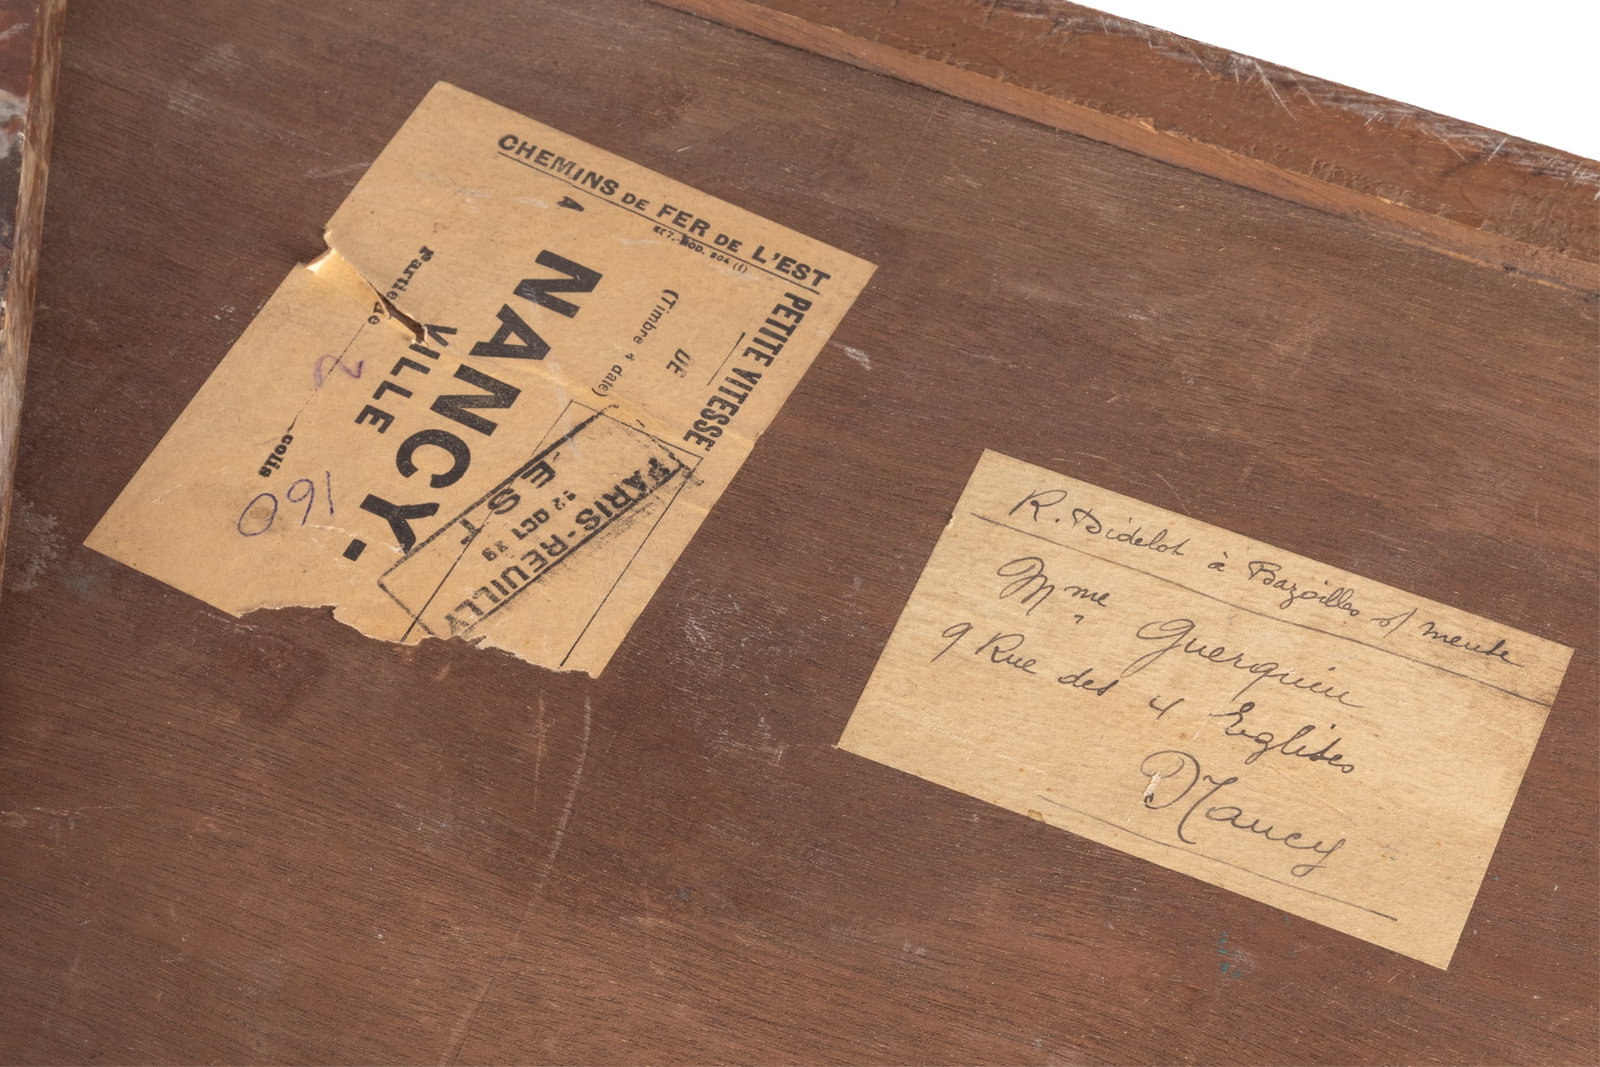 CHEMINS DE FER DE L'EST
MOD. 204 (1)
PETITE VITESSE
DE
(Timbre à date)
PARIS-REUILLY
12 OCT 39
EST
A
NANCY-
VILLE
Partie de
2
colis
160
R. Didelot à Bazoilles s/ meuse
Mme Guerquin
9 Rue des 4 Eglises
Nancy